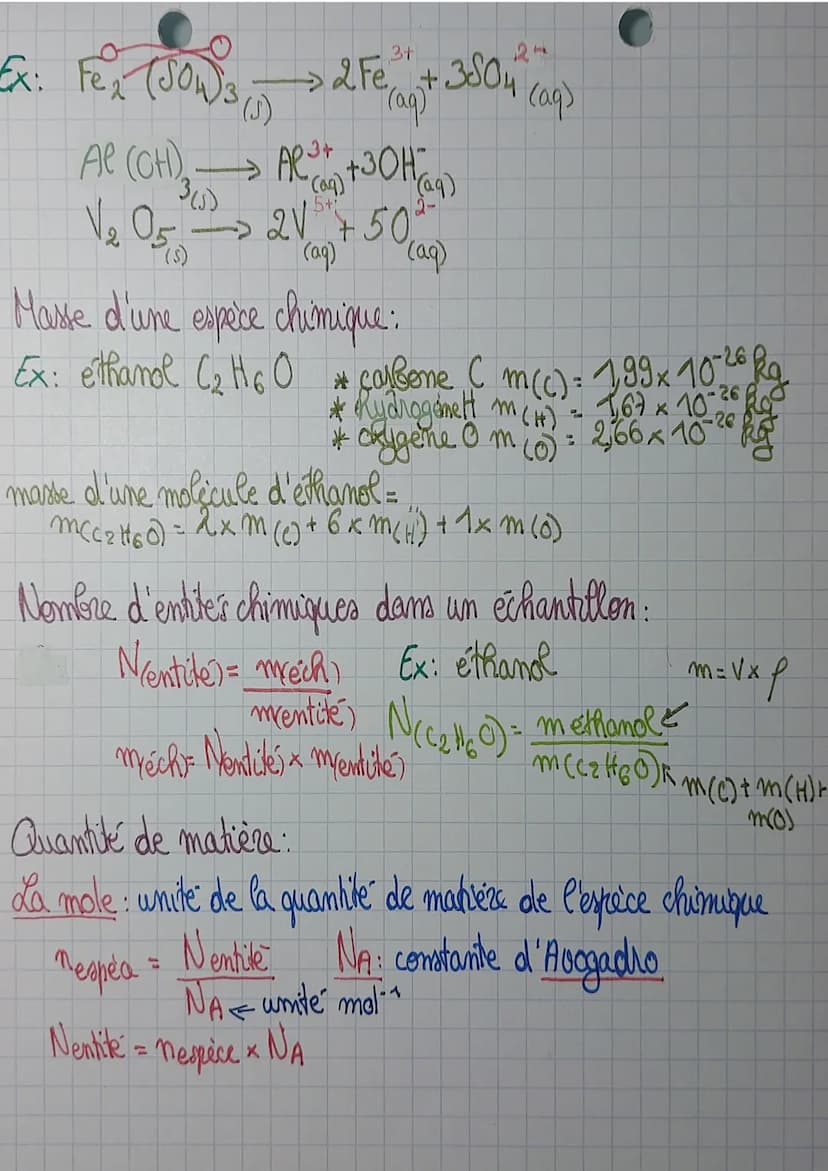 Ex: Fe2 (SO4)3 (s) → 2Fe3+ (aq) + 3SO4 2- (aq)
Al(OH)3(s) → Al3+ (aq) + 3OH- (aq)
V2O5(s) → 2V5+ (aq) + 5O2- (aq)
Masse d'une espèce chimique:
Ex: éthanol C2H6O * carbone C m(C) = 1,99 x 10-26 kg
* hydrogène H m(H) = 1,67 x 10-26 kg
* oxygène O m(O) = 2,66 x 10-26 kg
masse d'une molécule d'éthanol =
m(C2H6O) = 2 x m(C) + 6 x m(H) + 1 x m(O)
Nombre d'entités chimiques dans un échantillon:
N(entité) = m(éch) / m(entité) Ex: éthanol m = V x ρ
N(C2H6O) = m éthanol / m(C2H6O) ← m(C) + m(H) + m(O)
m(éch) = N(entité) x m(entité)
Quantité de matière:
La mole: unité de la quantité de matière de l'espèce chimique
nespèce = Nentité / NA ← unité mol-1 NA: constante d'Avogadro
Nentité = nespèce x NA